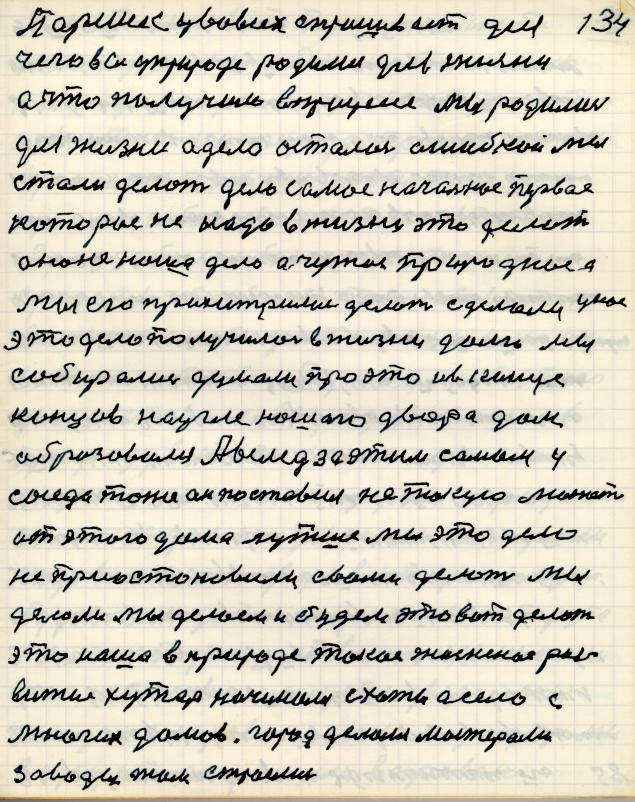 Паршек у вовсех спрашивает для 134
чего вси в природе родими для жизни
а что получило вприцепе мы родилися
для жизни а дело остался ошибкой мы
стали делат дело самое началное первае
которое не надо в жизни это делат
оно не наша дело а чужое природное а
мы его прихитрилис делат сделали
это дело получилос в жизни долго мы
собиралис думали про это и в конце
концов на угле нашаго двора дом
образовали А вслед за этим самом у
соседа тоже он поставил не такую может
от этого дома лутше мы это дело
не приостоновили своим делат мы
делали мы делаем и будем это вот делат
это наша в природе такое жизненое раз
витие хутар начинали с хаты а село с
многих домов. город делали мастерали
заводы там строели